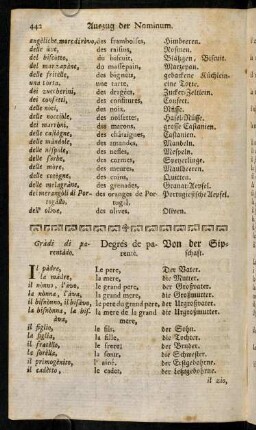 442 Auszug der Nominum.
angéliche, more di róvo, des framboises, Himbeeren.
delle úve, des raisins, Rosinen.
del biscotto, du biscuit, Biscuit.
del marzapáne, du massepain, Marzepan.
delle fritélle, des bignets, gebackene Küchlein.
una torta, une tarte, eine Torte.
dei zuccherini, des dragées, Zucker-Zeltlein.
dei confetti, des confitures, Confect.
delle noci, des noix, Nüsse.
delle nocciòle, des noisettes, Hasel-Nüsse.
dei marróni, des marons, grosse Castanien.
delle castágne, des châtaignes, Castanien.
delle mándole, des amandes, Mandeln.
delle néspole, des nesles, Mespeln.
delle sorbe, des cormes, Speyerlinge.
delle more, des meures, Maulbeeren.
delle cotógne, des coins, Quitten.
delle melagráne, des grenades, Granat-Aepfel.
dei meranzóli di Portogállo, des oranges de Portugal, Portugiesische Aepfel.
dell' olive, des olives, Oliven.
Grádi di parentádo, Degrés de parenté, Von der Sipschaft.
Il pádre, Le pere, Der Vater.
la mádre, la mere, die Mutter.
il nonno, l'ávo, le grand pere, der Großvater.
la nònna, l'áva, la grand mere, die Großmutter.
il bisnònno, il bisávo, le pere du grand pere, der Urgroßvater.
la bisnònna, la bisáva, la mere de la grand mere, die Urgroßmutter.
il figlio, le fils, der Sohn.
la figlia, la fille, die Tochter.
il fratéllo, le frere, der Bruder.
la sorélla, la sœur, die Schwester.
il primogénito, l'ainé, der Erstgebohrne.
il cadétto, le cadet, der letztgebohrne.
il zio,